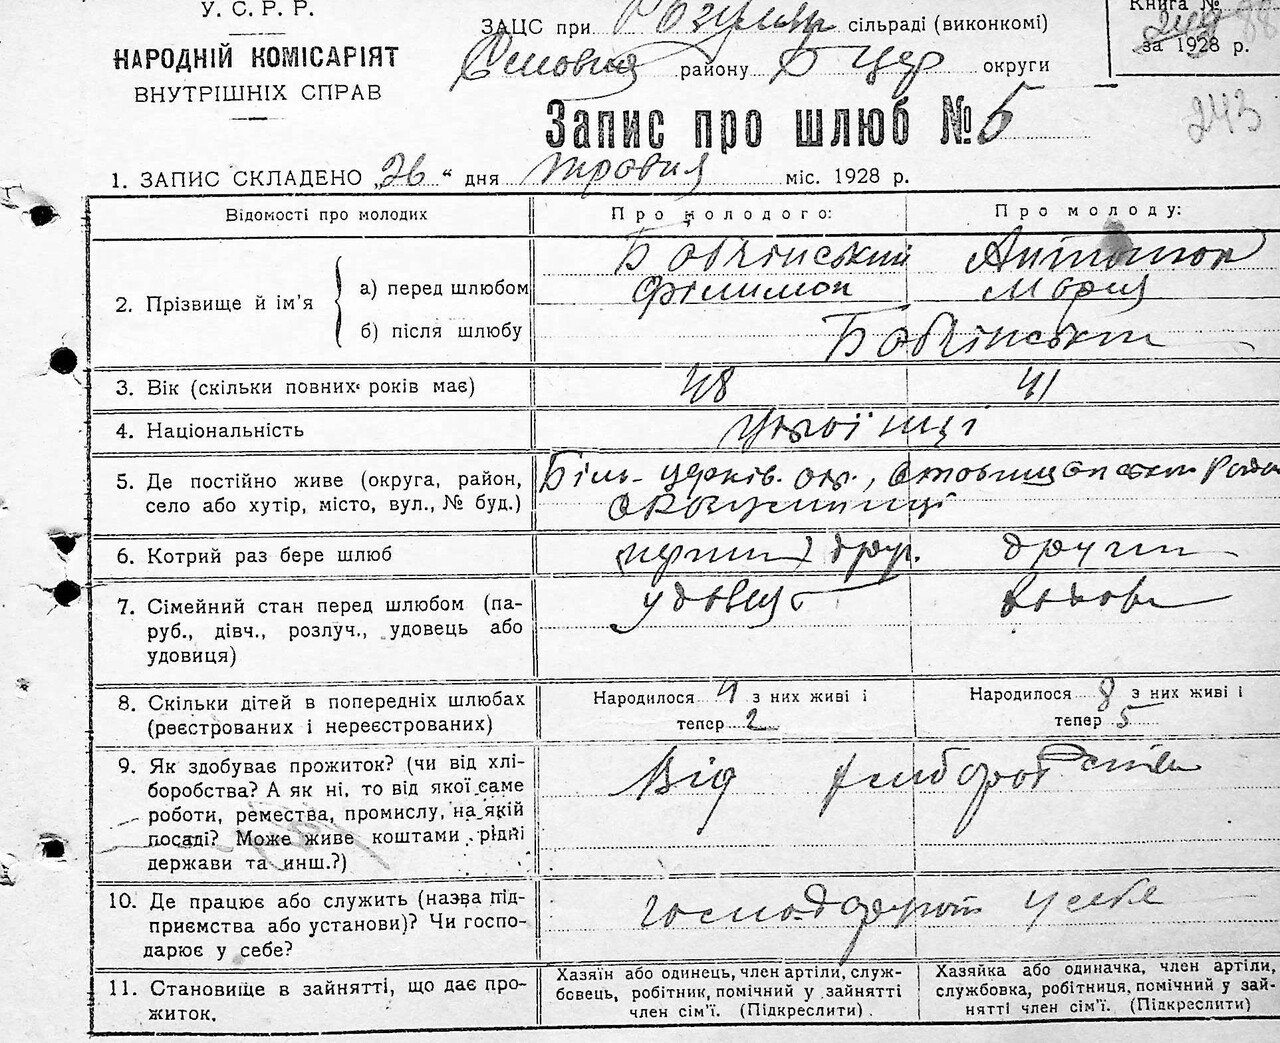 У. С. Р. Р.
НАРОДНІЙ КОМІСАРІЯТ
ВНУТРІШНІХ СПРАВ
ЗАЦС при сільраді (виконкомі)
району Б Цер округи
Книга №
249 88
за 1928 р.
243
Запис про шлюб № 5
1. ЗАПИС СКЛАДЕНО „26“ дня травня міс. 1928 р.
Відомості про молодих
Про молодого:
Про молоду:
2. Прізвище й ім'я
а) перед шлюбом
б) після шлюбу
Бовчінський
Филимон
Антонюк
Мария
Бовчінськи
3. Вік (скільки повних років має)
48
41
4. Національність
Українці
5. Де постійно живе (округа, район,
село або хутір, місто, вул., № буд.)
Біл-церків. ок.,
6. Котрий раз бере шлюб
друг.
други
7. Сімейний стан перед шлюбом (па-
руб., дівч., розлуч., удовець або
удовиця)
удовець
вдова
8. Скільки дітей в попередніх шлюбах
(реєстрованих і нереєстрованих)
Народилося 4 з них живі і
тепер 2
Народилося 8 з них живі і
тепер 5
9. Як здобуває прожиток? (чи від хлі-
боробства? А як ні, то від якої саме
роботи, ремества, промислу, на якій
посаді? Може живе коштами рідні
держави та инш.?)
Від хлиборобства
10. Де працює або служить (назва під-
приємства або установи)? Чи госпо-
дарює у себе?
господарюют у себе
11. Становище в зайнятті, що дає про-
житок.
Хазяїн або одинець, член артіли, служ-
бовець, робітник, помічний у зайнятті
член сім'ї. (Підкреслити).
Хазяйка або одиначка, член артіли,
службовка, робітниця, помічний у зай-
нятті член сім'ї. (Підкреслити)